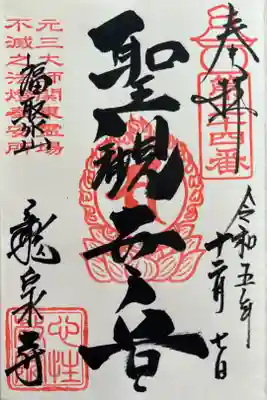 奉拝
令和五年
十二月
七日
聖観世音
元三大師
霊場
不滅之法燈奉安所
福聚山
龍泉寺